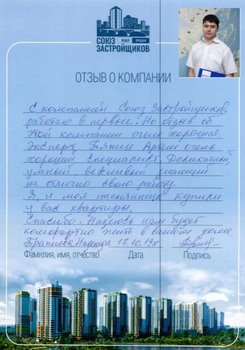 СОЮЗ ЗАСТРОЙЩИКОВ
ОТЗЫВ О КОМПАНИИ
С компанией Союз Застройщиков
работаю в первые. Но отзыв об
этой компании очень хороший.
Эксперт Артём очень
хороший специалист. Деликатный,
умный, вежливый знающий
на отлично свою работу.
Я, и моя купили
у вас квартиру.
Спасибо. Надеюсь нам будет
комфортно жить в ваших домах
17.10.19г.
Фамилия, имя, отчество Дата Подпись